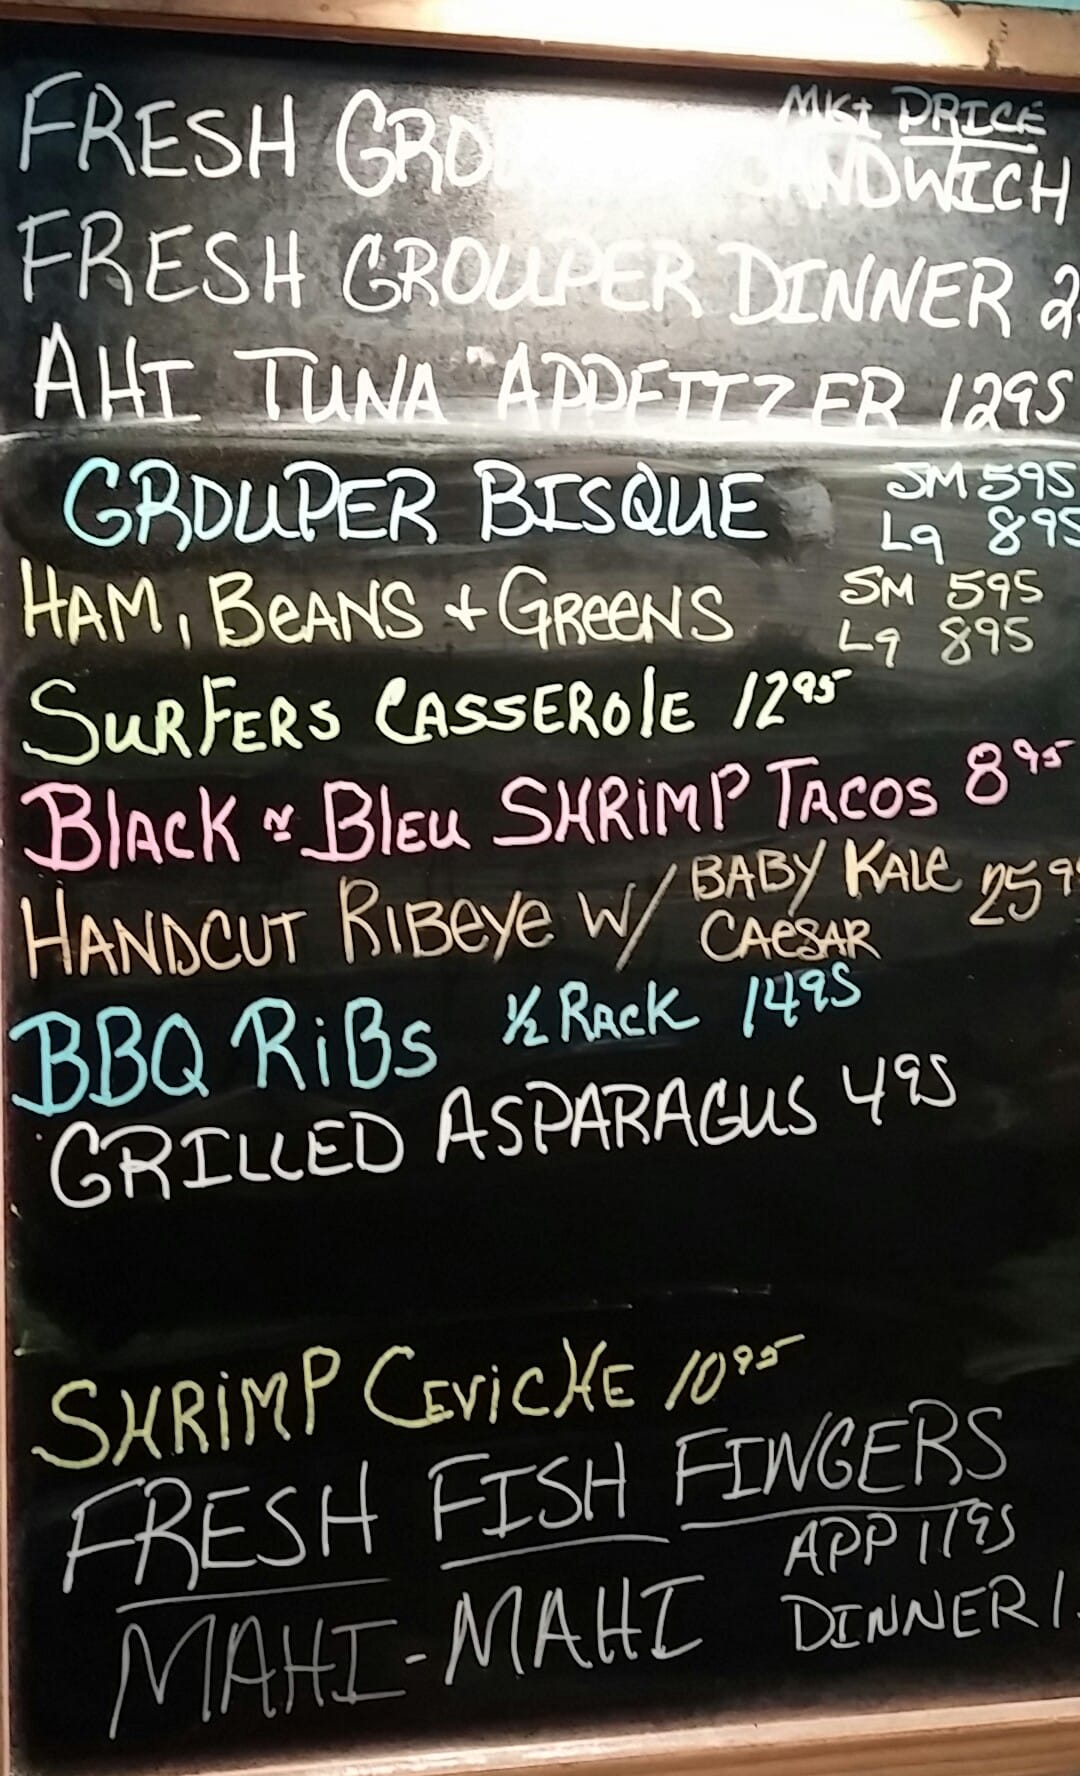 MKt PRICE
FRESH GRO SANDWICH
FRESH GROUPER DINNER
AHI TUNA APPETIZER 1295
GROUPER BISQUE SM 595
Lg 895
HAM, BEANS + GREENS SM 595
Lg 895
SURFERS CASSEROLE 1295
BLACK N BLEU SHRIMP TACOS 895
HANDCUT RIBEYE W/ BABY KALE 259
CAESAR
BBQ RIBS 1/2 RACK 1495
GRILLED ASPARAGUS 495
SHRIMP CEVICHE 1095
FRESH FISH FINGERS
APP 1195
MAHI-MAHI DINNER 1